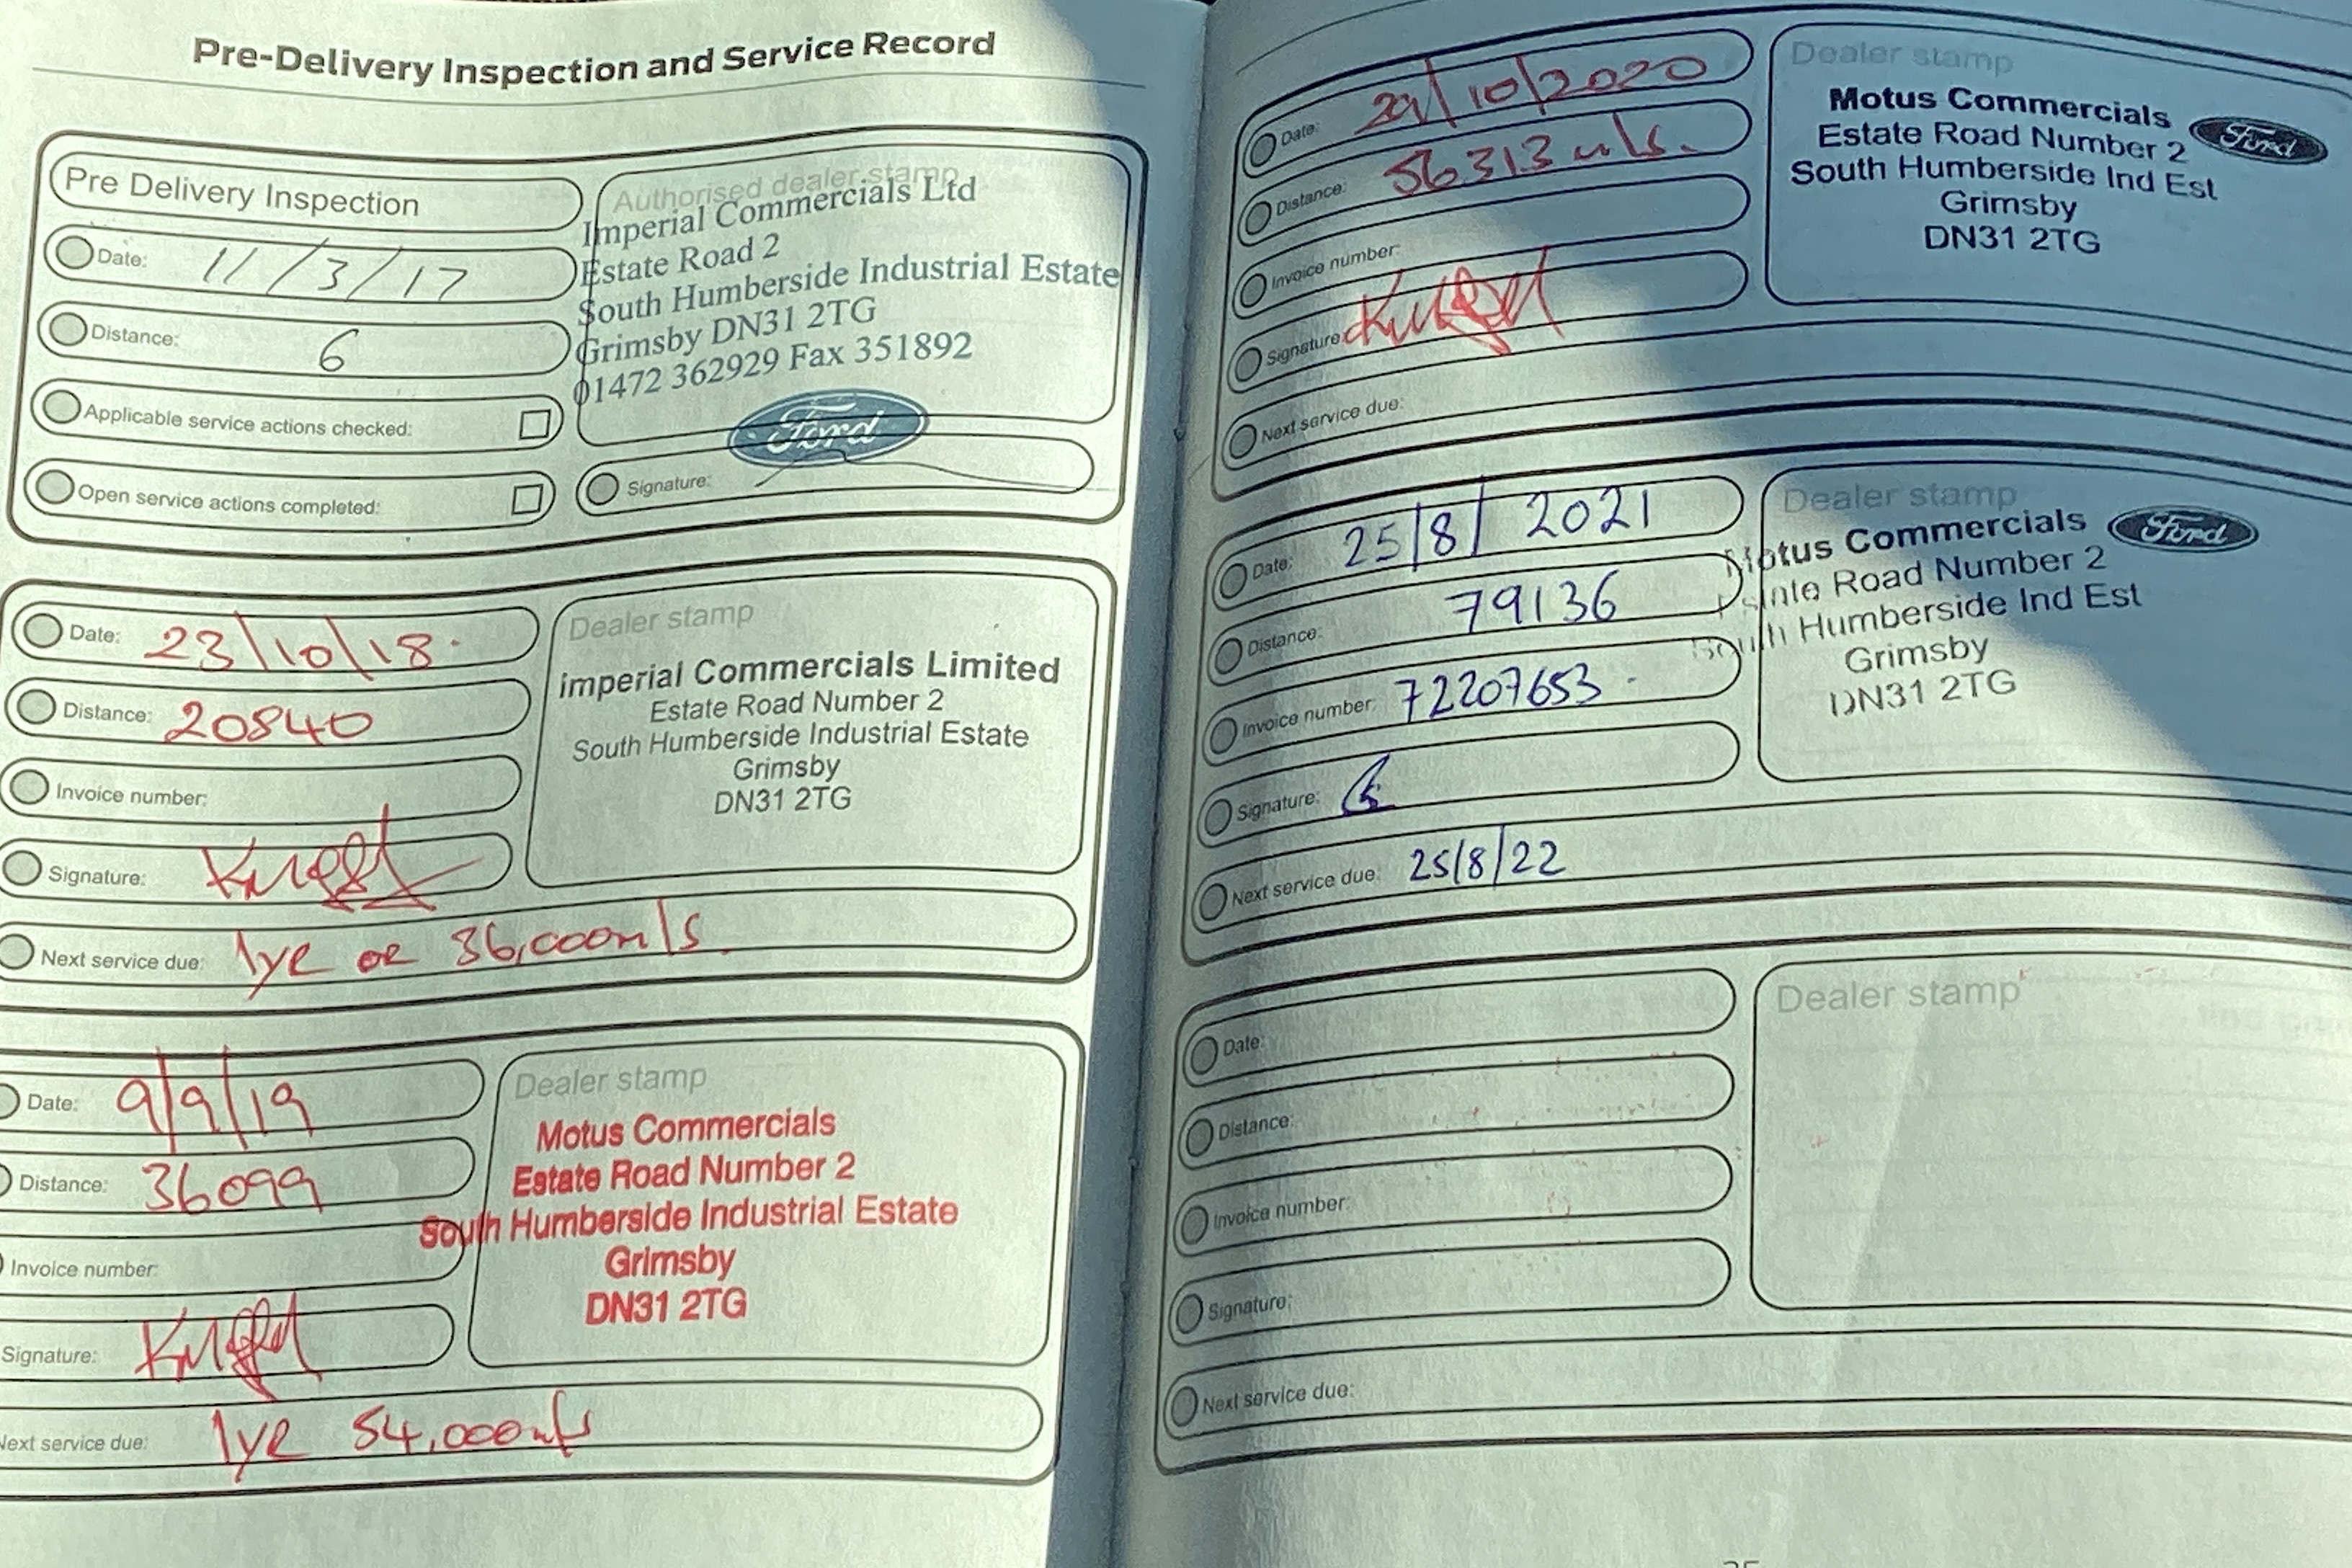 Pre-Delivery Inspection and Service Record
Pre Delivery Inspection
Date: 11/3/17
Distance: 6
Applicable service actions checked:
Open service actions completed:
Authorised dealer stamp
Imperial Commercials Ltd
Estate Road 2
South Humberside Industrial Estate
Grimsby DN31 2TG
01472 362929 Fax 351892
Ford
Signature:
Date: 23/10/18.
Distance: 20840
Invoice number:
Signature:
Next service due: 1yr or 36,000mls.
Dealer stamp
imperial Commercials Limited
Estate Road Number 2
South Humberside Industrial Estate
Grimsby
DN31 2TG
Date: 9/9/19
Distance: 36099
Invoice number:
Signature:
Next service due: 1yr 54,000mls
Dealer stamp
Motus Commercials
Estate Road Number 2
South Humberside Industrial Estate
Grimsby
DN31 2TG
Date: /10/2020
Distance: 56313 mls.
Invoice number:
Signature:
Next service due:
Dealer stamp
Motus Commercials
Estate Road Number 2
South Humberside Ind Est
Grimsby
DN31 2TG
Ford
Date: 25/8/2021
Distance: 79136
Invoice number: 72207653.
Signature:
Next service due: 25/8/22
Dealer stamp
Motus Commercials
Estate Road Number 2
South Humberside Ind Est
Grimsby
DN31 2TG
Ford
Date:
Distance:
Invoice number:
Signature:
Next service due:
Dealer stamp